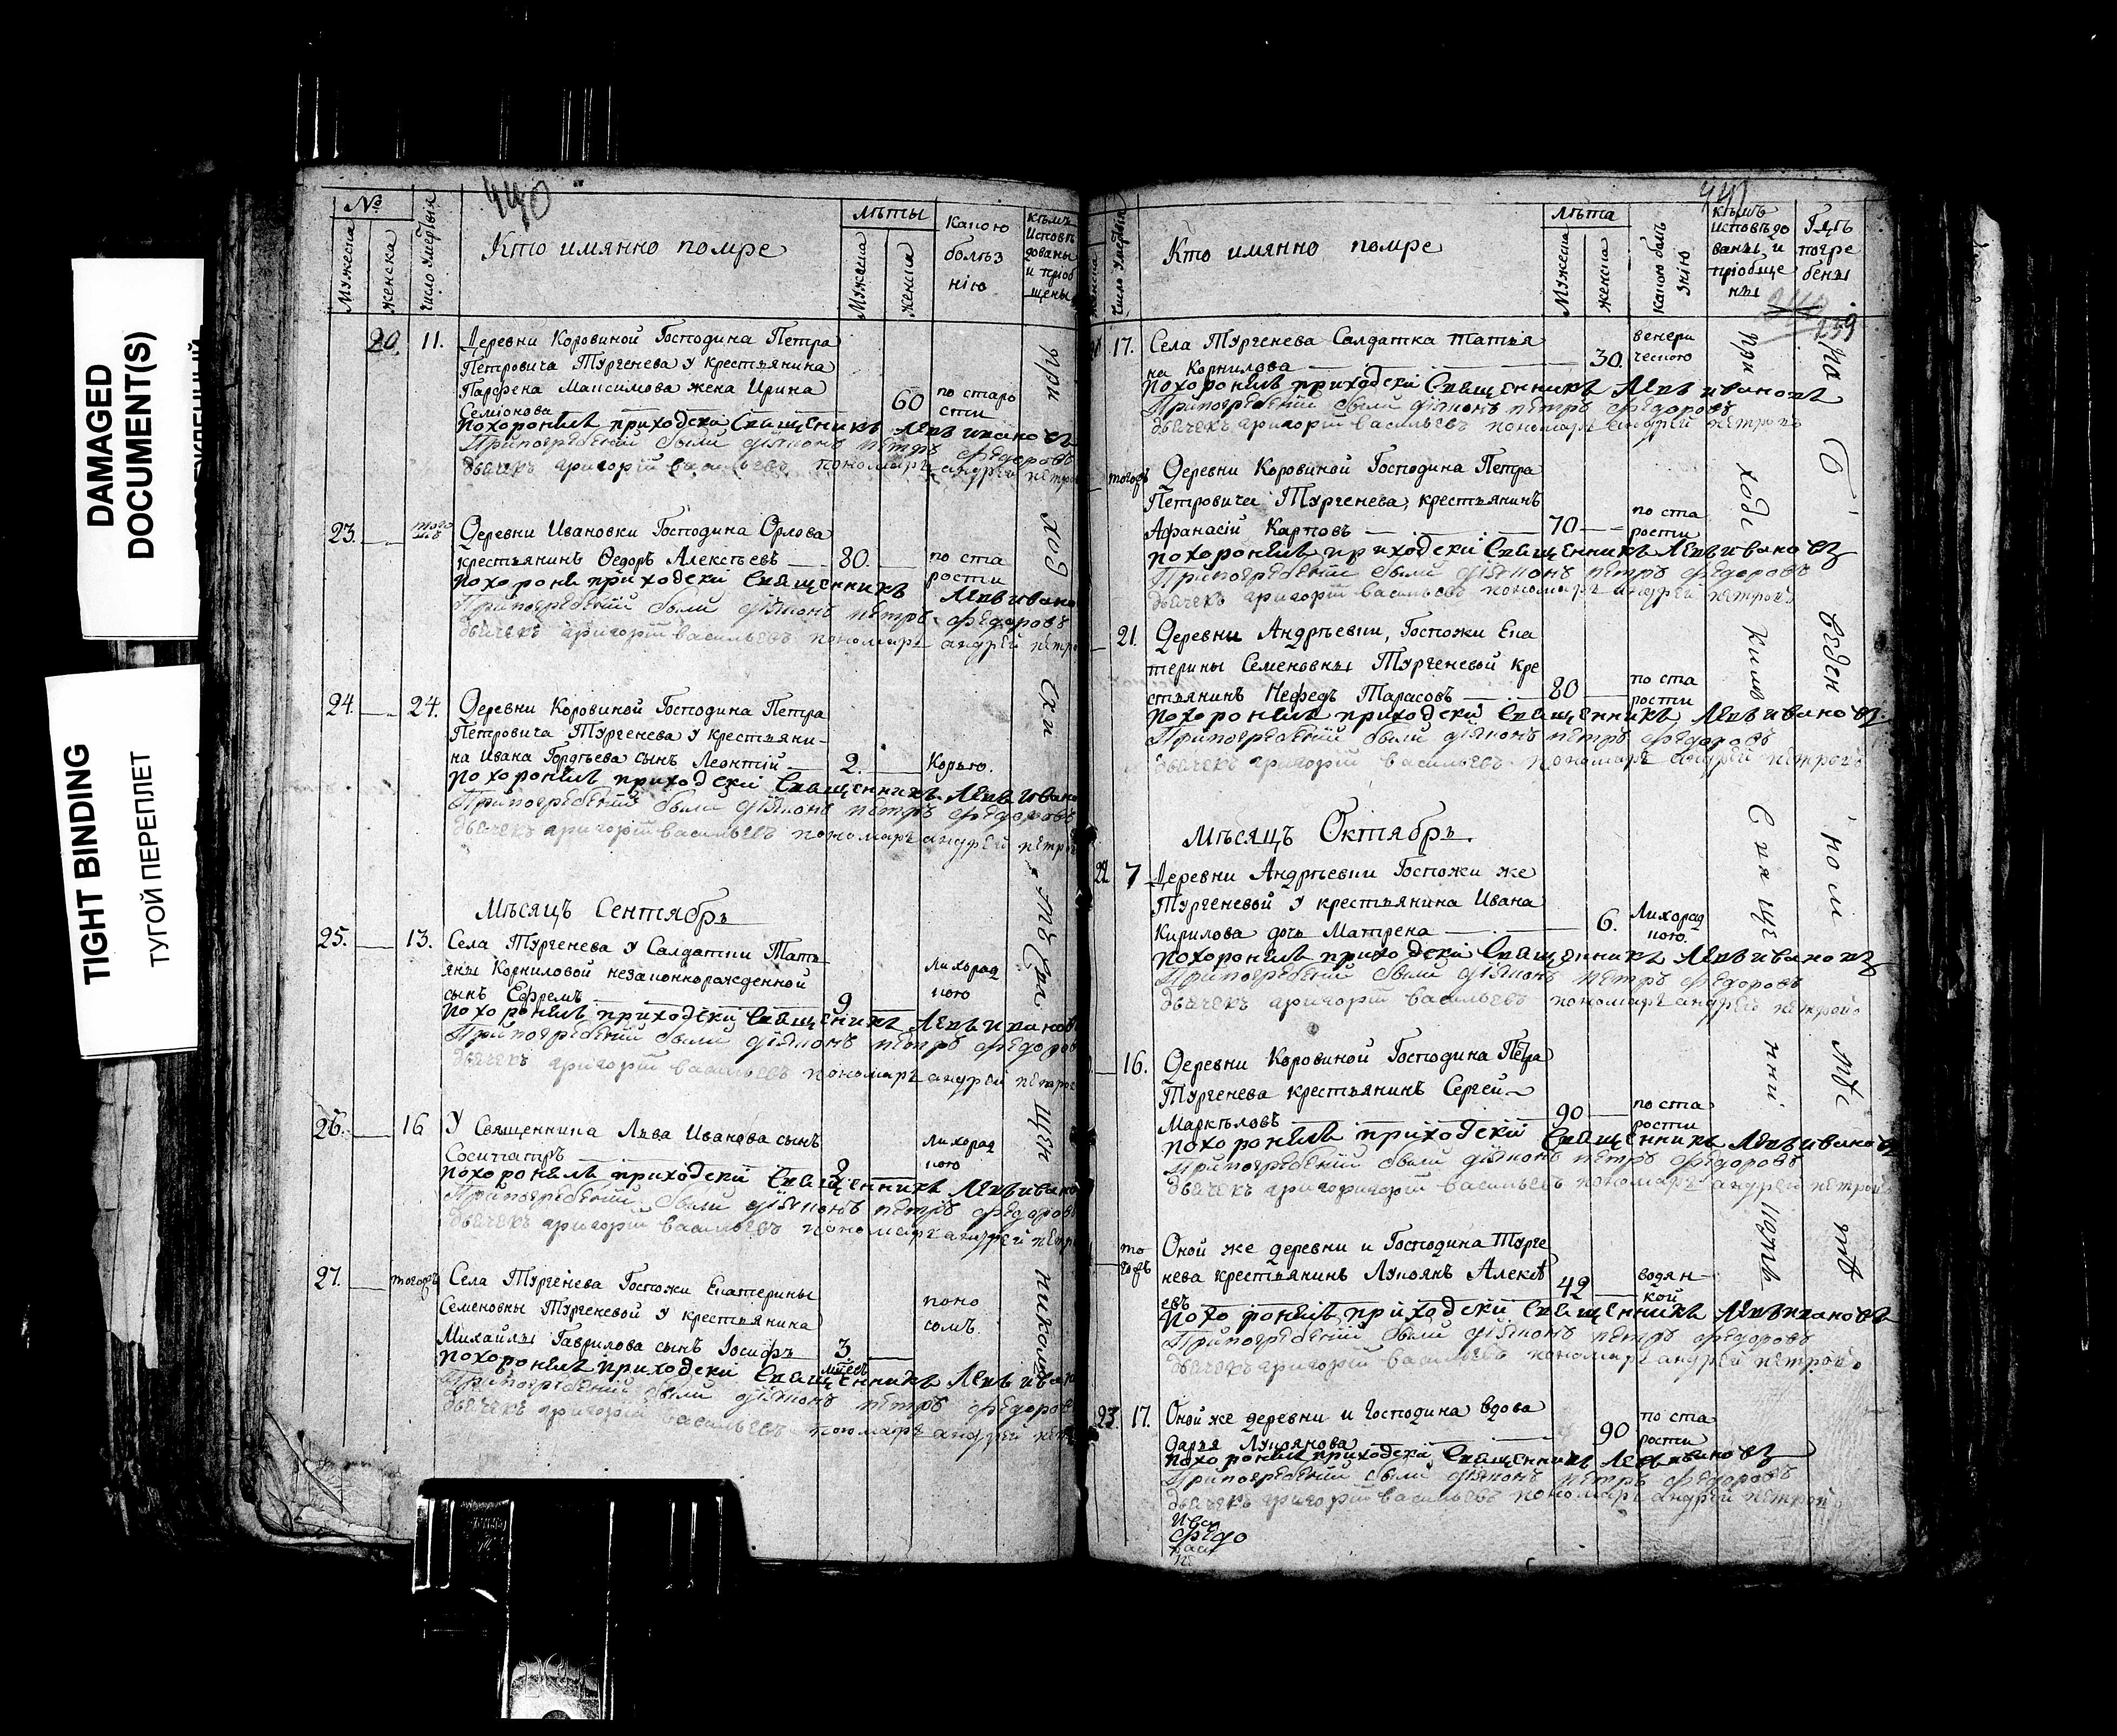 DAMAGED
DOCUMENT(S)
TIGHT BINDING
ТУГОЙ ПЕРЕПЛЕТ
440
№
Мужеска
женска
Число умертвия
Кто имянно помре
лѣты
Мужеска
женска
Какою
болѣз
нію
кѣмъ
исповѣ
дованы
и пріоб
щены
20. 11. Деревни Коровиной Господина Петра
Петровича Тургенева у крестьянина
Парфена Максимова жена Ирина
Семіонова 60 по старо
сти
Похоронилъ приходски Священникъ Левъ Ивановъ
Припогребеніи были діяконъ петръ федоровъ
дьячекъ григорій васильевъ пономарь андрей петро
23. того
Деревни Ивановки Господина Орлова
крестьянинъ Ѳедоръ Алексѣевъ 80. по ста
рости
Похорони приходски Священникъ Левъ Ивано
Припогребеніи были діяконъ петръ федоровъ
дьячекъ григорій васильевъ пономарь андрей петро
24. 24. Деревни Коровиной Господина Петра
Петровича Тургенева у крестьяни-
на Ивана Гордѣева сынъ Леонтій 2. Корью.
Похоронилъ приходски Священникъ Левъ Ивано
Припогребеніи были діяконъ петръ федоровъ
дьячекъ григорій васильевъ пономарь андрей петро
Мѣсяцъ Сентябрь
25. 13. Села Тургенева у Салдатки Тать
яны Корниловой незаконнорожденной
сынъ Ефремъ 9 Лихорад
кою
Похоронилъ приходски Священникъ Левъ Иванов
Припогребеніи были діяконъ петръ федоров
дьячекъ григорій васильевъ пономарь андрей петро
26. 16 У Священника Льва Иванова сынъ
Сосипатръ 2 Лихорад
кою
Похоронилъ приходски Священникъ Левъ Ивано
Припогребеніи были діяконъ петръ федоров
дьячекъ григорій васильевъ пономарь андрей петр
27. тогожъ Села Тургенева Госпожи Екатерины
Семеновны Тургеневой у крестьянина
Михайлы Гаврилова сынъ Іосифъ 3 поно
сомъ.
Похоронилъ приходски Священникъ Левъ Иван
Припогребеніи были діяконъ петръ федоров
дьячекъ григорій васильевъ пономарь андрей пет
при ход ски
441
женска
Число умертвія
Кто имянно помре
лѣта
Мужеска
женска
Какою болѣ
знію
кѣмъ
исповѣдо
ваны и
пріобще
ны
Гдѣ
погре
бены
239
17. Села Тургенева Салдатка Татья
на Корнилова 30. венери
ческою
Похоронилъ приходски Священникъ Левъ Ивановъ
Припогребеніи были діяконъ петръ федоровъ
дьячекъ григорій васильевъ пономарь андрей петровъ
тогожъ Деревни Коровиной Господина Петра
Петровича Тургенева, крестьянинъ
Афанасій Карповъ 70 по ста
рости
Похоронилъ приходски Священникъ Левъ Ивановъ
Припогребеніи были діяконъ петръ федоровъ
дьячекъ григорій васильевъ пономарь андрей петровъ
21. Деревни Андрѣевки, Госпожи Ека
терины Семеновны Тургеневой кре
стьянинъ Нефедъ Тарасовъ 80 по ста
рости
Похоронилъ приходски Священникъ Левъ Ивановъ.
Припогребеніи были діяконъ петръ федоровъ
дьячекъ григорій васильевъ пономарь андрей петровъ
Мѣсяцъ Октябрь.
22 7 Деревни Андрѣевки Госпожи же
Тургеневой у крестьянина Ивана
Кирилова дочь Матрена 6. Лихорад
кою.
Похоронилъ приходски Священникъ Левъ Ивановъ
Припогребеніи были діяконъ петръ федоровъ
дьячекъ григорій васильевъ пономарь андрей петровъ
16. Деревни Коровиной Господина Петра
Тургенева крестьянинъ Сергей
Маркѣловъ 90 по ста
рости
Похоронилъ приходски Священникъ Левъ Ивановъ
Припогребеніи были діяконъ петръ федоровъ
дьячекъ григоригорій васильевъ пономарь андрей петровъ
то
гожъ Оной же деревни и Господина Турге
нева крестьянинъ Лукоянъ Алексѣ
евъ 42 водян
кой
Похоронилъ приходски Священникъ Левъ Ивановъ
Припогребеніи были діяконъ петръ федоровъ
дьячекъ григорій васильевъ пономарь андрей петровъ
23. 17. Оной же деревни и Господина вдова
Дарья Лукоянова 90 по ста
рости
Похоронилъ приходски Священникъ Левъ Ивановъ
Припогребеніи были діяконъ петръ федоровъ
дьячекъ григорій васильевъ пономарь андрей петровъ
Ива
федо
васи